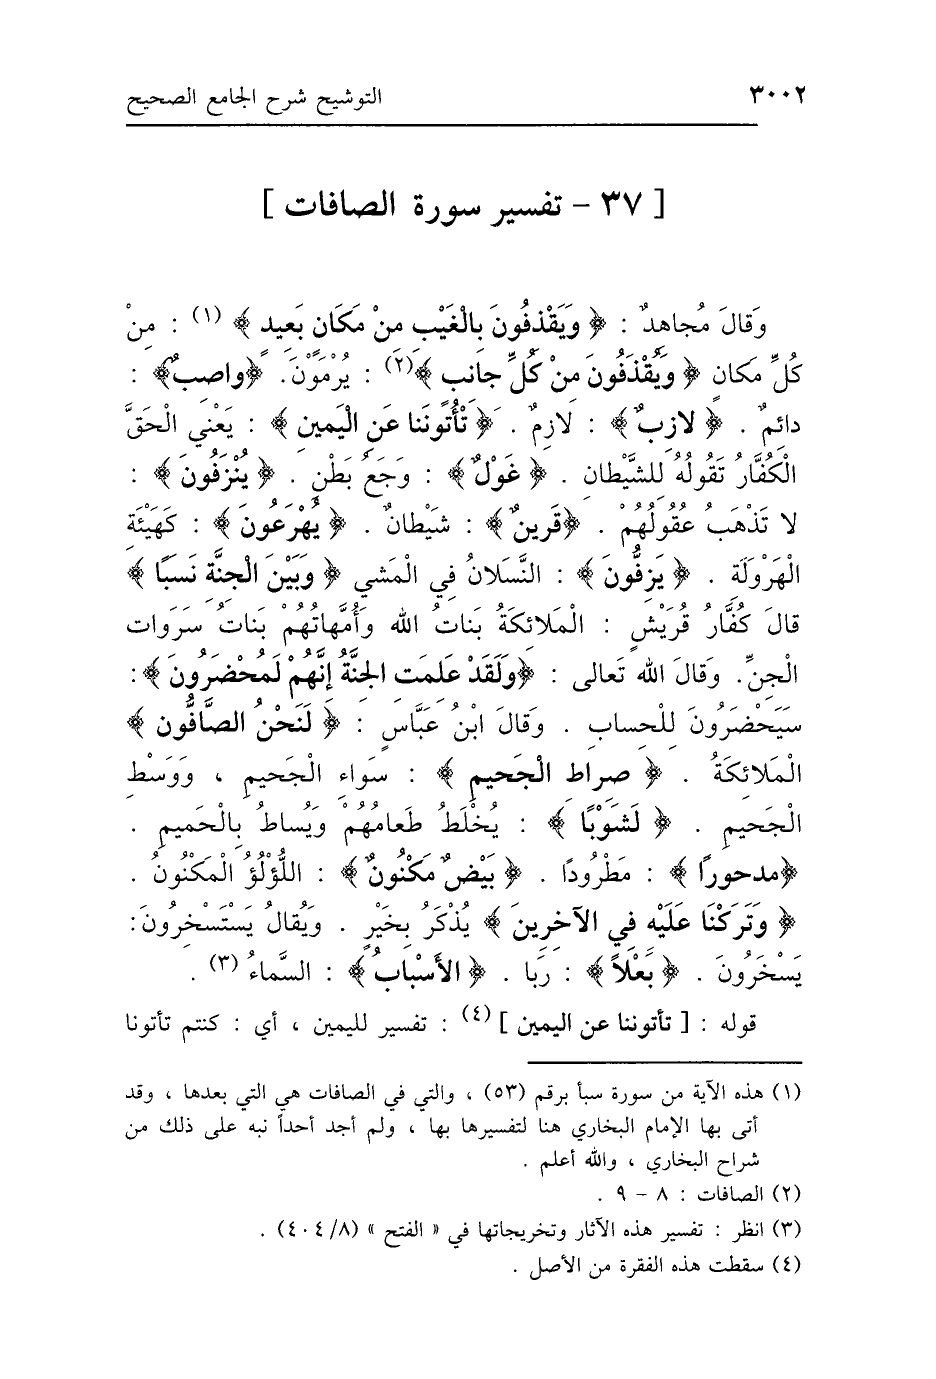 ٣٠٠٢ التوشيح شرح الجامع الصحيح
[ ٣٧ - تفسير سورة الصافات ]
وَقَالَ مُجاهِدٌ : ﴿ وَيَقْذِفُونَ بِالْغَيْبِ مِنْ مَكَانٍ بَعِيدٍ ﴾ (١) : مِنْ
كُلِّ مَكَانٍ ﴿ وَيُقْذَفُونَ مِنْ كُلِّ جانِبٍ ﴾(٢) : يُرْمَوْنَ. ﴿واصِبٌ﴾ :
دائِمٌ . ﴿ لازِبٌ﴾ : لَازِمٌ . ﴿ تَأْتُونَنا عَنِ الْيَمِينِ ﴾ : يَعْنِي الْحَقَّ
الْكُفَّارُ تَقُولُهُ لِلشَّيْطانِ . ﴿ غَوْلٌ﴾ : وَجَعُ بَطْنٍ . ﴿ يُنْزَفُونَ ﴾ :
لا تَذْهَبُ عُقُولُهُمْ . ﴿قَرِينٌ﴾ : شَيْطانٌ . ﴿ يُهْرَعُونَ ﴾ : كَهَيْئَةِ
الْهَرْوَلَةِ . ﴿ يَزِفُّونَ ﴾ : النَّسَلانُ فِي الْمَشْيِ ﴿ وَبَيْنَ الْجِنَّةِ نَسَبًا ﴾
قالَ كُفَّارُ قُرَيْشٍ : الْمَلائِكَةُ بَناتُ اللهِ وَأُمَّهاتُهُمْ بَناتُ سَرَواتِ
الْجِنِّ. وَقالَ اللهُ تَعالى : ﴿وَلَقَدْ عَلِمَتِ الجِنَّةُ إِنَّهُمْ لَمُحْضَرُونَ ﴾:
سَيَحْضَرُونَ لِلْحِسابِ . وَقالَ ابْنُ عَبَّاسٍ : ﴿ لَنَحْنُ الصَّافُّون ﴾
الْمَلائِكَةُ . ﴿ صِراطِ الْجَحِيمِ ﴾ : سَواءِ الْجَحِيمِ ، وَوَسْطِ
الْجَحِيمِ . ﴿ لَشَوْبًا ﴾ : يُخْلَطُ طَعامُهُمْ وَيُساطُ بِالْحَمِيمِ .
﴿مدحوراً ﴾ : مَطْرُودًا . ﴿ بَيْضٌ مَكْنُونٌ ﴾ : اللُّؤْلُؤُ الْمَكْنُونُ .
﴿ وَتَرَكْنَا عَلَيْهِ فِي الآخِرِينَ ﴾ يُذْكَرُ بِخَيْرٍ . وَيُقالُ يَسْتَسْخِرُونَ:
يَسْخَرُونَ . ﴿ بَعْلاً ﴾ : رَبا . ﴿ الأَسْبابُ ﴾ : السَّماءُ (٣) .
قوله : [ تأتوننا عن اليمين ] (٤) : تفسير لليمين ، أي : كنتم تأتونا
(١) هذه الآية من سورة سبأ برقم (٥٣) ، والتي في الصافات هي التي بعدها ، وقد
أتى بها الإمام البخاري هنا لتفسيرها بها ، ولم أجد أحداً نبه على ذلك من
شراح البخاري ، والله أعلم .
(٢) الصافات : ٨ - ٩ .
(٣) انظر : تفسير هذه الآثار وتخريجاتها في « الفتح » (٤٠٤/٨) .
(٤) سقطت هذه الفقرة من الأصل .